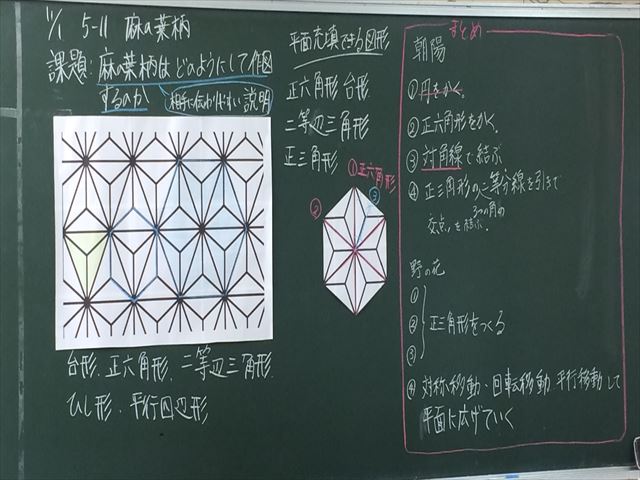 11/1 5-11 麻の葉柄
課題:麻の葉柄はどのようにして作図
するのか
相手に伝わりやすい説明
台形、正六角形、二等辺三角形、
ひし形、平行四辺形
平面充填できる図形
正六角形 台形
二等辺三角形
正三角形
①正六角形
②
③
まとめ
朝陽
①円をかく。
②正六角形をかく。
③対角線で結ぶ
④正三角形の二等分線を引いて
3つの角の
交点を結ぶ。
野の花
①
②正三角形をつくる
③
④対称移動・回転移動 平行移動して
平面に広げていく